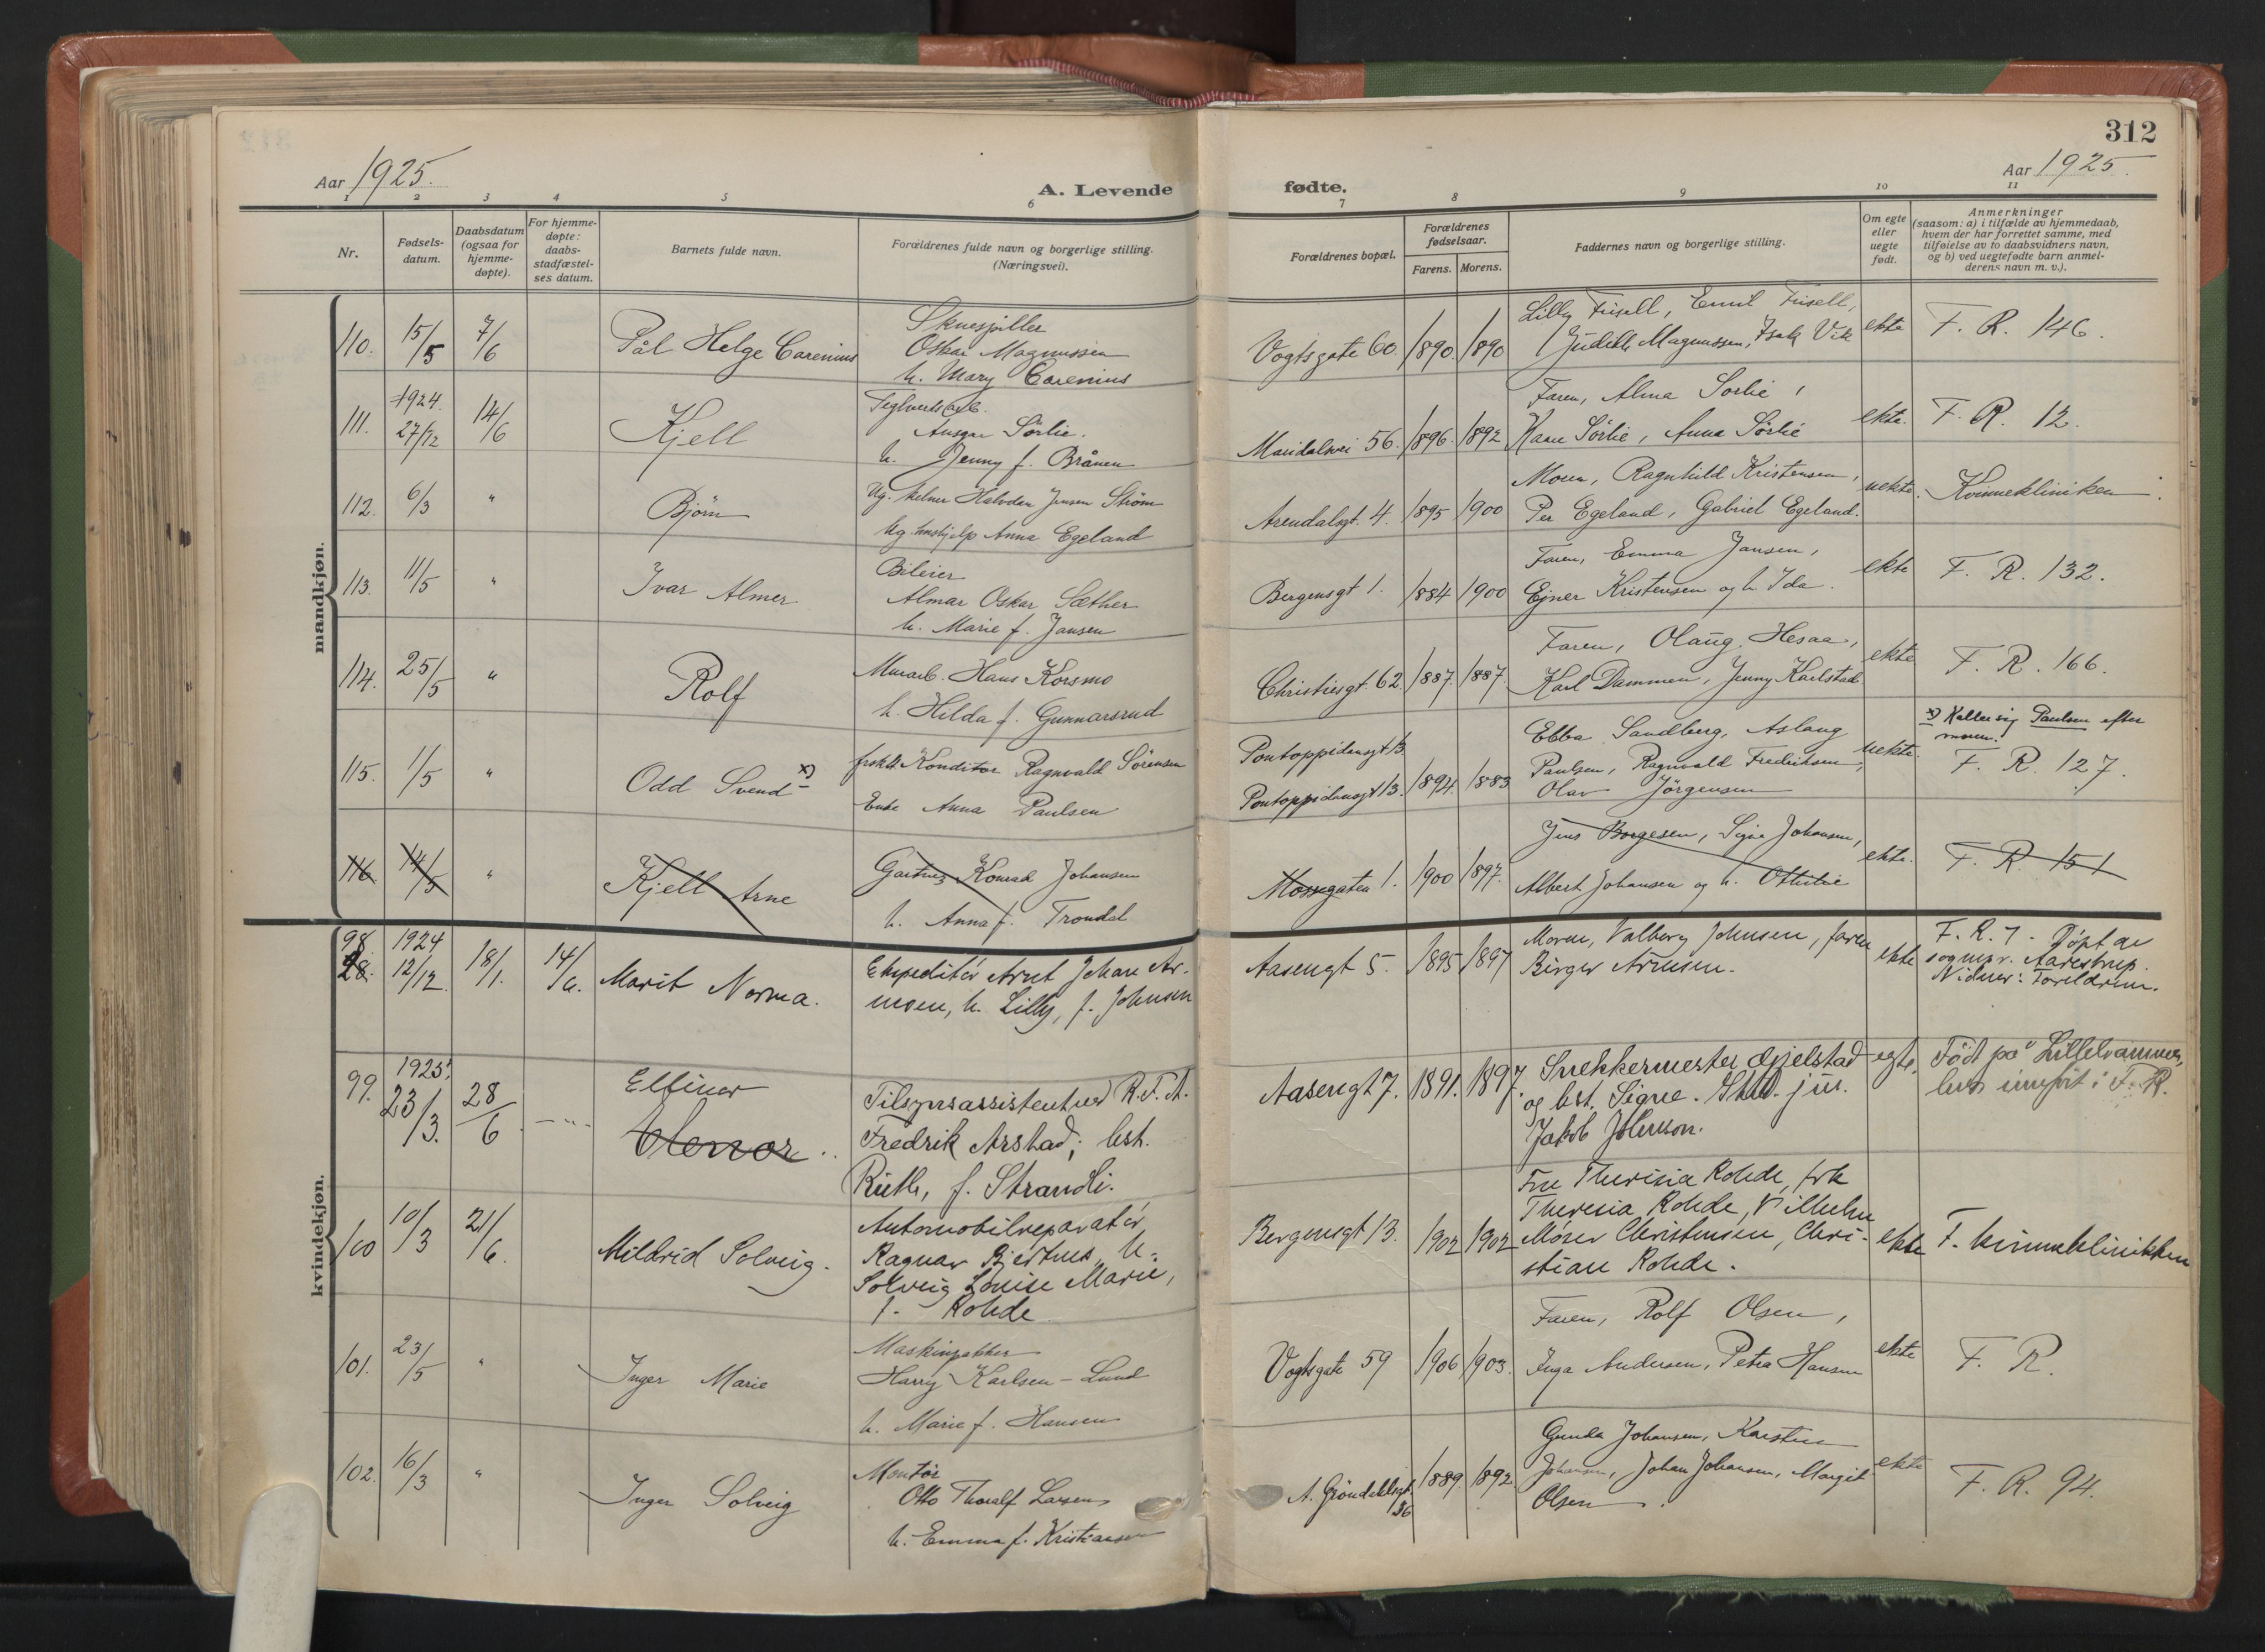 312
Aar 1925.
A. Levende
fødte.
Aar 1925.
1 2 3 4 5 6 7 8 9 10 11
Nr.
Fødsels-
datum.
Daabsdatum
(ogsaa for
hjemme-
døpte).
For hjemme-
døpte:
daabs-
stadfæstel-
ses datum.
Barnets fulde navn.
Forældrenes fulde navn og borgerlige stilling.
(Næringsvei).
Forældrenes bopæl.
Forældrenes
fødselsaar.
Farens. Morens.
Faddernes navn og borgerlige stilling.
Om egte
eller
uegte
født.
Anmerkninger
(saasom: a) i tilfælde av hjemmedaab,
hvem der har forrettet samme, med
tilføielse av to daabsvidners navn,
og b) ved uegtefødte barn anmel-
derens navn m. v.).
mandkjøn.
110. 15/5 7/6
Pål Helge Carenius
Skuespiller
Oskar Magnussen
h. Mary Carenius
Vogtsgate 60. 1890. 1890
Lilly Frisell, Emil Frisell,
Judith Magnussen, Isak Vik
ekte
F. R. 146.
111. 1924. 27/12 14/6
Kjell
Teglverksarb.
Ansgar Sörlie.
h. Jenny f. Brånen
Maridalsvei 56. 1896. 1892
Faren, Alma Sorlie,
Hans Sörlie, Anna Sörlie
ekte.
F. R. 12.
112. 6/3 "
Björn
Ug. kelner Halvdan Jensen Strøm
Ug. hushjelp Anna Egeland
Arendalsgt. 4. 1895 1900
Moren, Ragnhild Kristensen,
Per Egeland, Gabriel Egeland.
uekte.
Kvinnekliniken.
113. 11/5 "
Ivar Almer
Bileier
Almar Oskar Sæther
h. Marie f. Jansen
Bergensgt 1. 1884 1900
Faren, Emma Jansen,
Ejner Kristensen og h. Ida.
ekte
F. R. 132.
114. 25/5 "
Rolf
Murarb. Hans Korsmo
h. Hilda f. Gunnarsrud
Christiesgt. 62. 1887. 1887.
Faren, Olaug Hesaa,
Karl Dammen, Jenny Karlstad
ekte
F. R. 166.
115. 1/5 "
Odd Svend x)
fraskilt Konditor Ragnvald Sörensen
Enke Anna Paulsen
Pontoppidansgt 13.
Pontoppidansgt 13. 1894. 1883
Ebba Sandberg, Aslaug
Paulsen, Ragnvald Fredriksen,
Olav Jörgensen
uekte.
x) Kaller sig Paulsen efter
moren.
F. R. 127.
116 14/5 "
Kjell Arne
Gartner Konrad Johansen
h. Anna f. Trondal
Mossegaten 1. 1900 1897.
Jens Borgesen, Signe Johansen,
Albert Johansen og h. Othilie
ekte.
F. R. 151
kvindekjøn.
98. 1924 12/12 18/1. 14/6.
28.
Marit Norma.
Ekspeditör Arnt Johan Ar-
nesen, h. Lilly, f. Johnsen
Aasengt 5. 1895 1897
Moren, Valborg Johnsen, faren
Birger Arnesen.
ekte
F. R. 7. Döpt av
sognepr. Aarestrup.
Vidner: Foreldrene.
99. 1925. 23/3. 28/6 - " -
Ellinor
Elenor.
Tilsynsassistent ved R. F. A.
Fredrik Arstad; hst.
Ruth, f. Strandli.
Aasengt 7. 1891. 1897.
Snekkermester Gjelstad
og hst. Signe. Stud. jur.
Jakob Johnson.
egte,
Född på Lillehammer,
blev innført i F. R.
100 10/3 21/6.
Mildrid Solveig.
Automobilreparatör
Ragnar Bjertnes, h.
Solveig Louise Marie,
f. Rohde
Bergensgt 13. 1902 1902
Fru Theresia Rohde, frk
Theresia Rohde, Vilhelm
Mörer Christensen, Chri-
stian Rohde.
ekte
F. kvinneklinikken
101. 23/5 "
Inger Marie
Maskinpakker
Harry Karlsen - Lund
h. Marie f. Hansen
Vogtsgate 59 1906 1903.
Faren, Rolf Olsen,
Inga Andersen, Petra Hansen
ekte
F. R.
102. 16/3 "
Inger Solveig
Montör
Otto Thoralf Larsen
h. Emma f. Kristiansen
A. Gröndahlsgt. 36 1889. 1892.
Gunda Johansen, Karsten
Johansen, Johan Johansen, Margit
Olsen.
ekte
F. R. 94.